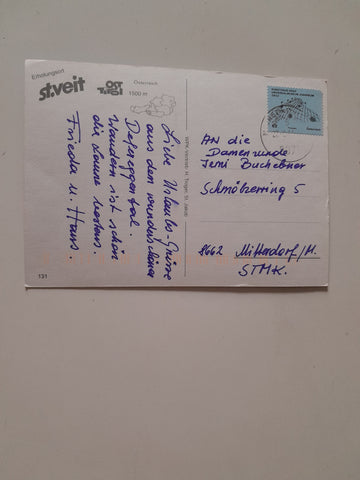 Erholungsort
st.veit
OST
TIROL
Österreich
1500 m
Liebe Urlaubs-Grüsse
aus dem wunderschönen
Defereggental.
Wandern ist schön
die Laune bestens.
Frieda u. Hans
131
AN die
Damenrunde
Jeni Buchebner
Schmölzerring 5
8662 Mitterdorf/M.
STMK.